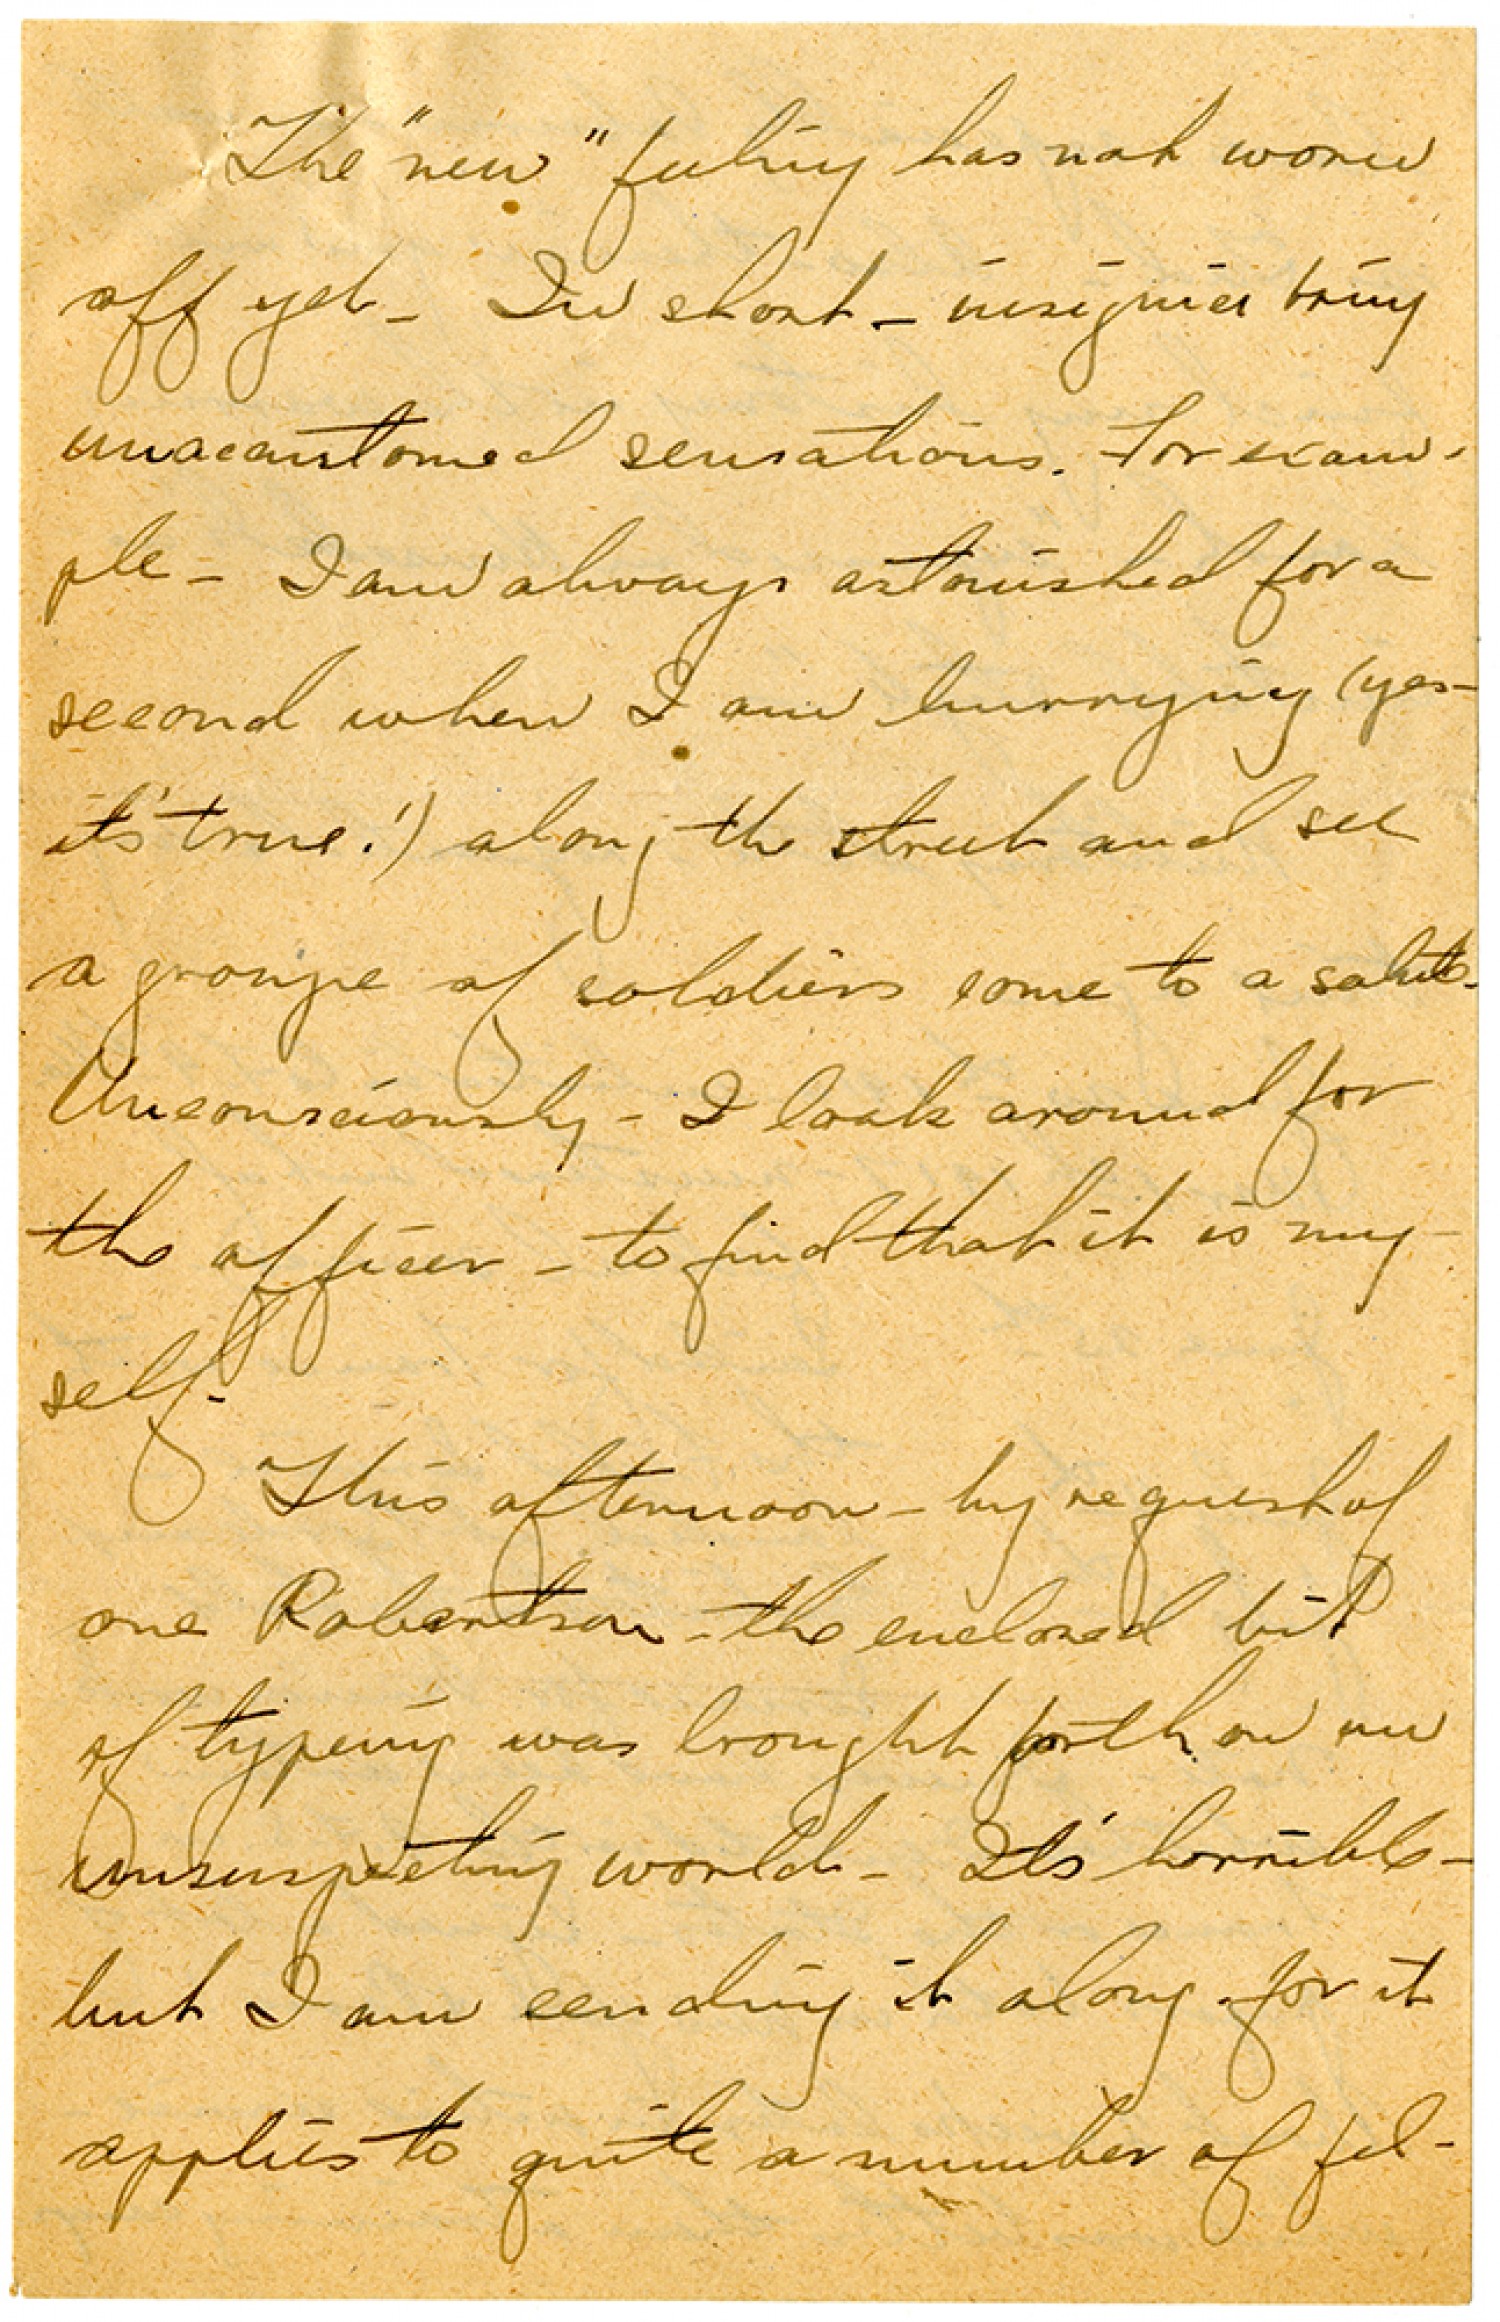 The "new" feeling has not worn
off yet - In short - insignia bring
unacustomed sensations. For exam-
ple - I am always astonished for a
second when I am hurrying (yes -
it's true!) along the street and see
a groupe of soldiers come to a salute.
Unconsciously - I look around for
the officer - to find that it is my-
self.
This afternoon - by request of
one Robertson - the enclosed bit
of typeing was brought forth on an
unsuspecting world - It's horrible -
but I am sending it along for it
applies to quite a number of fel-